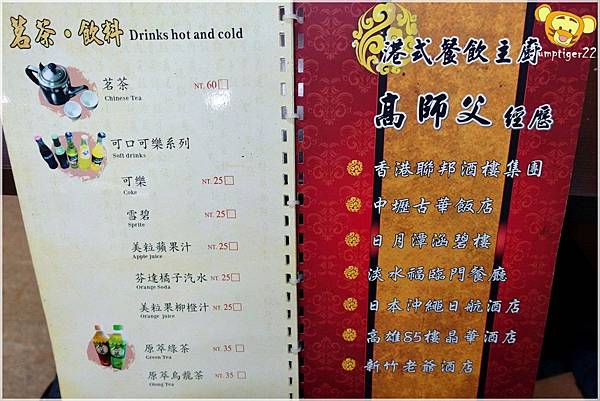 茗茶·飲料 Drinks hot and cold
茗茶 NT. 60
Chinese Tea
可口可樂系列
Soft drinks
可樂 NT. 25
Coke
雪碧 NT. 25
Sprite
美粒蘋果汁 NT. 25
Apple juice
芬達橘子汽水 NT. 25
Orange Soda
美粒果柳橙汁 NT. 25
Orange juice
原萃綠茶 NT. 35
Green Tea
原萃烏龍茶 NT. 35
Olong Tea
港式餐飲主廚
高師父 經歷
香港聯邦酒樓集團
中壢古華飯店
日月潭涵碧樓
淡水福臨門餐廳
日本沖繩日航酒店
高雄85樓晶華酒店
新竹老爺酒店
jumptiger22